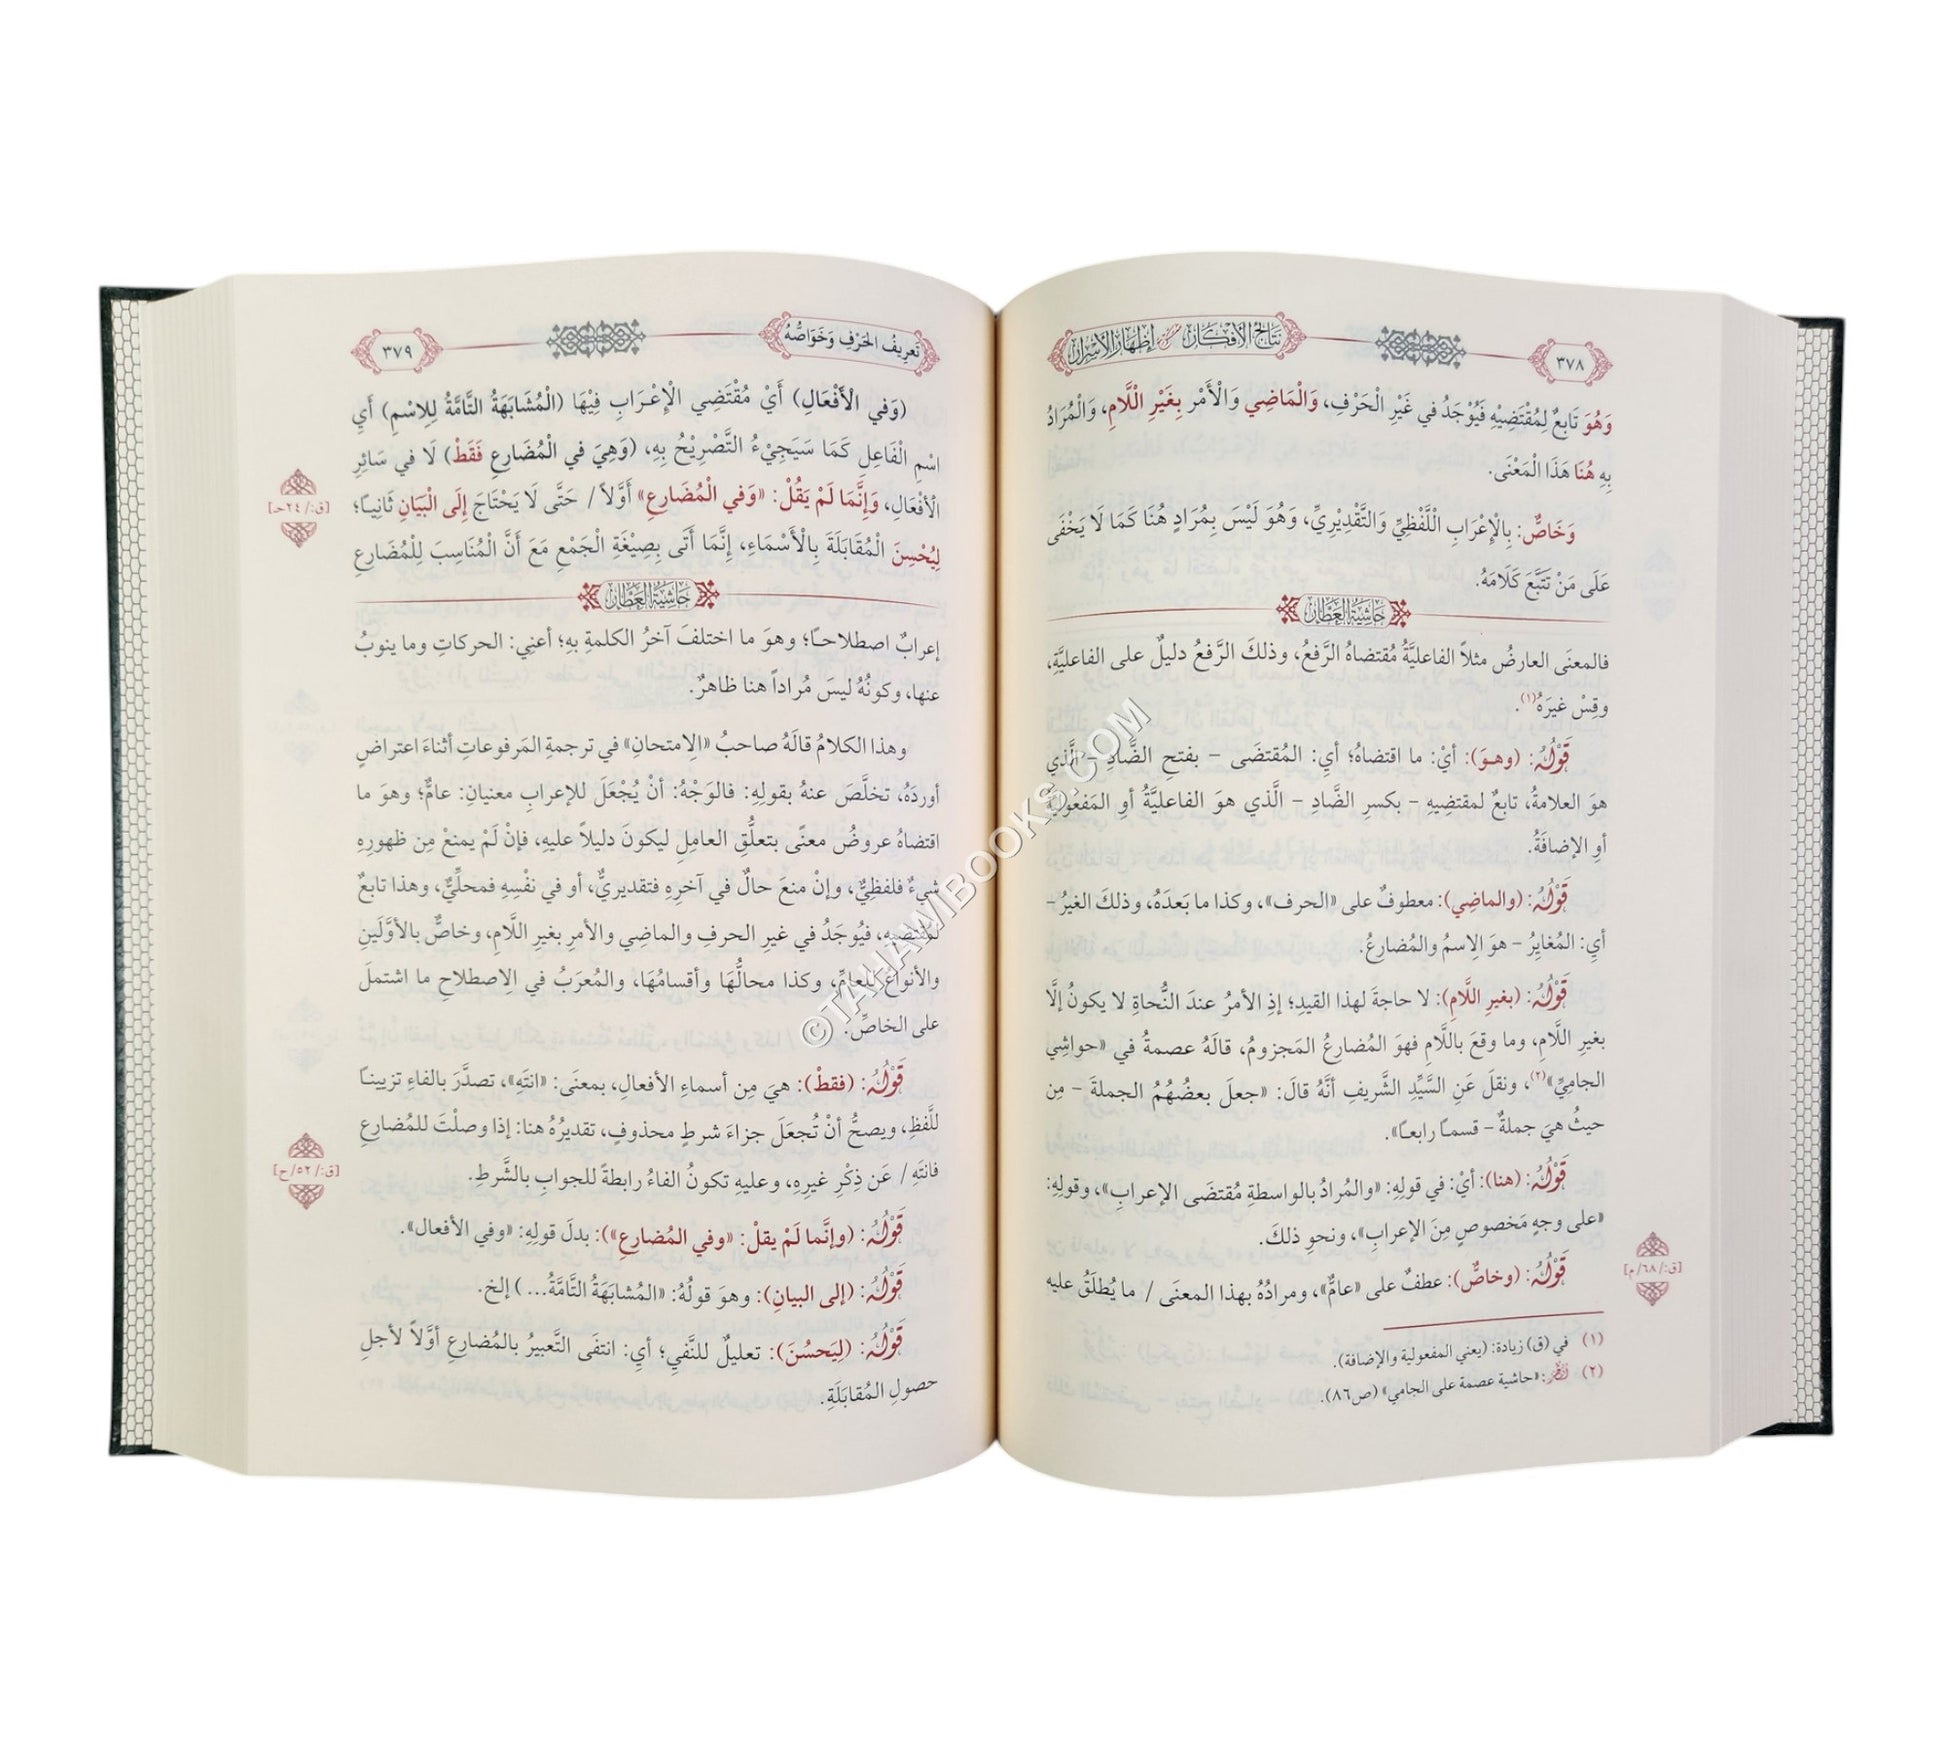 ٣٧٨
نتائج الأفكار شرح إظهار الأسرار
وَهُوَ تَابِعٌ لِمُقْتَضِيْهِ فَيُوْجَدُ في غَيْرِ الْحَرْفِ، وَالْمَاضِي وَالْأَمْرِ بِغَيْرِ اللَّامِ، وَالْمُرَادُ
بِهِ هُنَا هَذَا الْمَعْنَى.
وَخَاصٌّ: بِالْإِعْرَابِ اللَّفْظِيِّ وَالتَّقْدِيْرِيِّ، وَهُوَ لَيْسَ بِمُرَادٍ هُنَا كَمَا لَا يَخْفَى
عَلَى مَنْ تَتَبَّعَ كَلَامَهُ.
حاشية العطار
فالمعنَى العارضُ مثلاً الفاعليَّةُ مُقتضاهُ الرَّفعُ، وذلكَ الرَّفعُ دليلٌ على الفاعليَّةِ،
وقِسْ غيرَهُ(١).
قَوْلُهُ: (وهوَ): أيْ: ما اقتضاهُ؛ أيِ: المُقتضَى – بفتحِ الضَّادِ – الَّذي
هوَ العلامةُ، تابعٌ لمقتضِيهِ – بكسرِ الضَّادِ – الَّذي هوَ الفاعليَّةُ أوِ المَفعوليَّةُ
أوِ الإضافَةُ.
قَوْلُهُ: (والماضِي): معطوفٌ على «الحرف»، وكذا ما بَعدَهُ، وذلكَ الغيرُ –
أيِ: المُغايِرُ – هوَ الِاسمُ والمُضارِعُ.
قَوْلُهُ: (بغيرِ اللَّامِ): لا حاجةَ لهذا القيدِ؛ إذِ الأمرُ عندَ النُّحاةِ لا يكونُ إلَّا
بغيرِ اللَّامِ، وما وقعَ باللَّامِ فهوَ المُضارِعُ المَجزومُ، قالَهُ عصمةُ في «حواشِي
الجامِيِّ»(٢)، ونقلَ عَنِ السَّيِّدِ الشَّريفِ أنَّهُ قالَ: «جعلَ بعضُهُمُ الجملةَ – مِن
حيثُ هيَ جملةٌ – قسمـًا رابعـًا».
قَوْلُهُ: (هنا): أيْ: في قولِهِ: «والمُرادُ بالواسطةِ مُقتضَى الإعرابِ»، وقولِهِ:
«على وجهٍ مَخصوصٍ مِنَ الإعرابِ»، ونحوِ ذلكَ.
قَوْلُهُ: (وخاصٌّ): عطفٌ على «عامٌّ»، ومرادُهُ بهذا المعنَى / ما يُطلَقُ عليه
[ق:/٦٨/م]
(١) في (ق) زيادة: (يعني المفعولية والإضافة).
(٢) انظر: «حاشية عصمة على الجامي» (ص٨٦).
تعريف الحرف وخواصه
٣٧٩
(وَفي الْأَفْعَالِ) أَيْ مُقْتَضِي الْإِعْرَابِ فِيْهَا (الْمُشَابَهَةُ التَّامَّةُ لِلِاسْمِ) أَيِ
اسْمِ الْفَاعِلِ كَمَا سَيَجِيْءُ التَّصْرِيْحُ بِهِ، (وَهِيَ في الْمُضَارِعِ فَقَطْ) لَا في سَائِرِ
الْأَفْعَالِ، وَإِنَّمَا لَمْ يَقُلْ: «وَفي الْمُضَارِعِ» أَوَّلاً / حَتَّى لَا يَحْتَاجَ إِلَى الْبَيَانِ ثَانِيـًا؛
[ق:/٢٤حـ]
لِيُحْسِنَ الْمُقَابَلَةَ بِالْأَسْمَاءِ، إِنَّمَا أَتَى بِصِيْغَةِ الْجَمْعِ مَعَ أَنَّ الْمُنَاسِبَ لِلْمُضَارِعِ
حاشية العطار
إعرابٌ اصطلاحـًا؛ وهوَ ما اختلفَ آخرُ الكلمةِ بهِ؛ أعنِي: الحركاتِ وما ينوبُ
عنها، وكونُهُ ليسَ مُراداً هنا ظاهرٌ.
وهذا الكلامُ قالَهُ صاحبُ «الِامتحانِ» في ترجمةِ المَرفوعاتِ أثناءَ اعتراضٍ
أوردَهُ، تخلَّصَ عنهُ بقولِهِ: فالوَجْهُ: أنْ يُجْعَلَ للإعرابِ معنيانِ: عامٌّ؛ وهوَ ما
اقتضاهُ عروضُ معنًى بتعلُّقِ العاملِ ليكونَ دليلاً عليهِ، فإنْ لَمْ يمنعْ مِن ظهورِهِ
شيءٌ فلفظِيٌّ، وإنْ منعَ حالٌ في آخرِهِ فتقديريٌّ، أو في نفْسِهِ فمحلِّيٌّ، وهذا تابعٌ
لمُقتضِيهِ، فيُوجَدُ في غيرِ الحرفِ والماضِي والأمرِ بغيرِ اللَّامِ، وخاصٌّ بالأوَّلَينِ
والأنواعُ للعامِّ، وكذا محالُّهَا وأقسامُهَا، والمُعرَبُ في الِاصطلاحِ ما اشتملَ
على الخاصِّ.
قَوْلُهُ: (فقطْ): هيَ مِن أسماءِ الأفعالِ، بمعنَى: «انتَهِ»، تصدَّرَ بالفاءِ تزيينـًا
للَّفظِ، ويصحُّ أنْ تُجعَلَ جزاءَ شرطٍ محذوفٍ، تقديرُهُ هنا: إذا وصلْتَ للمُضارِعِ
فانتَهِ / عَن ذِكْرِ غيرِهِ، وعليهِ تكونُ الفاءُ رابطةً للجوابِ بالشَّرطِ.
[ق:/٥٢/ح]
قَوْلُهُ: (وإنَّما لَمْ يقلْ: «وفي المُضارِعِ»): بدلَ قولِهِ: «وفي الأفعال».
قَوْلُهُ: (إلى البيانِ): وهوَ قولُهُ: «المُشابَهَةُ التَّامَّةُ... ) إلخ.
قَوْلُهُ: (لِيَحسُنَ): تعليلٌ للنَّفيِ؛ أيِ: انتفَى التَّعبيرُ بالمُضارِعِ أوَّلاً لأجلِ
حصولِ المُقابَلَةِ.
©TAHAWIBOOKS.COM